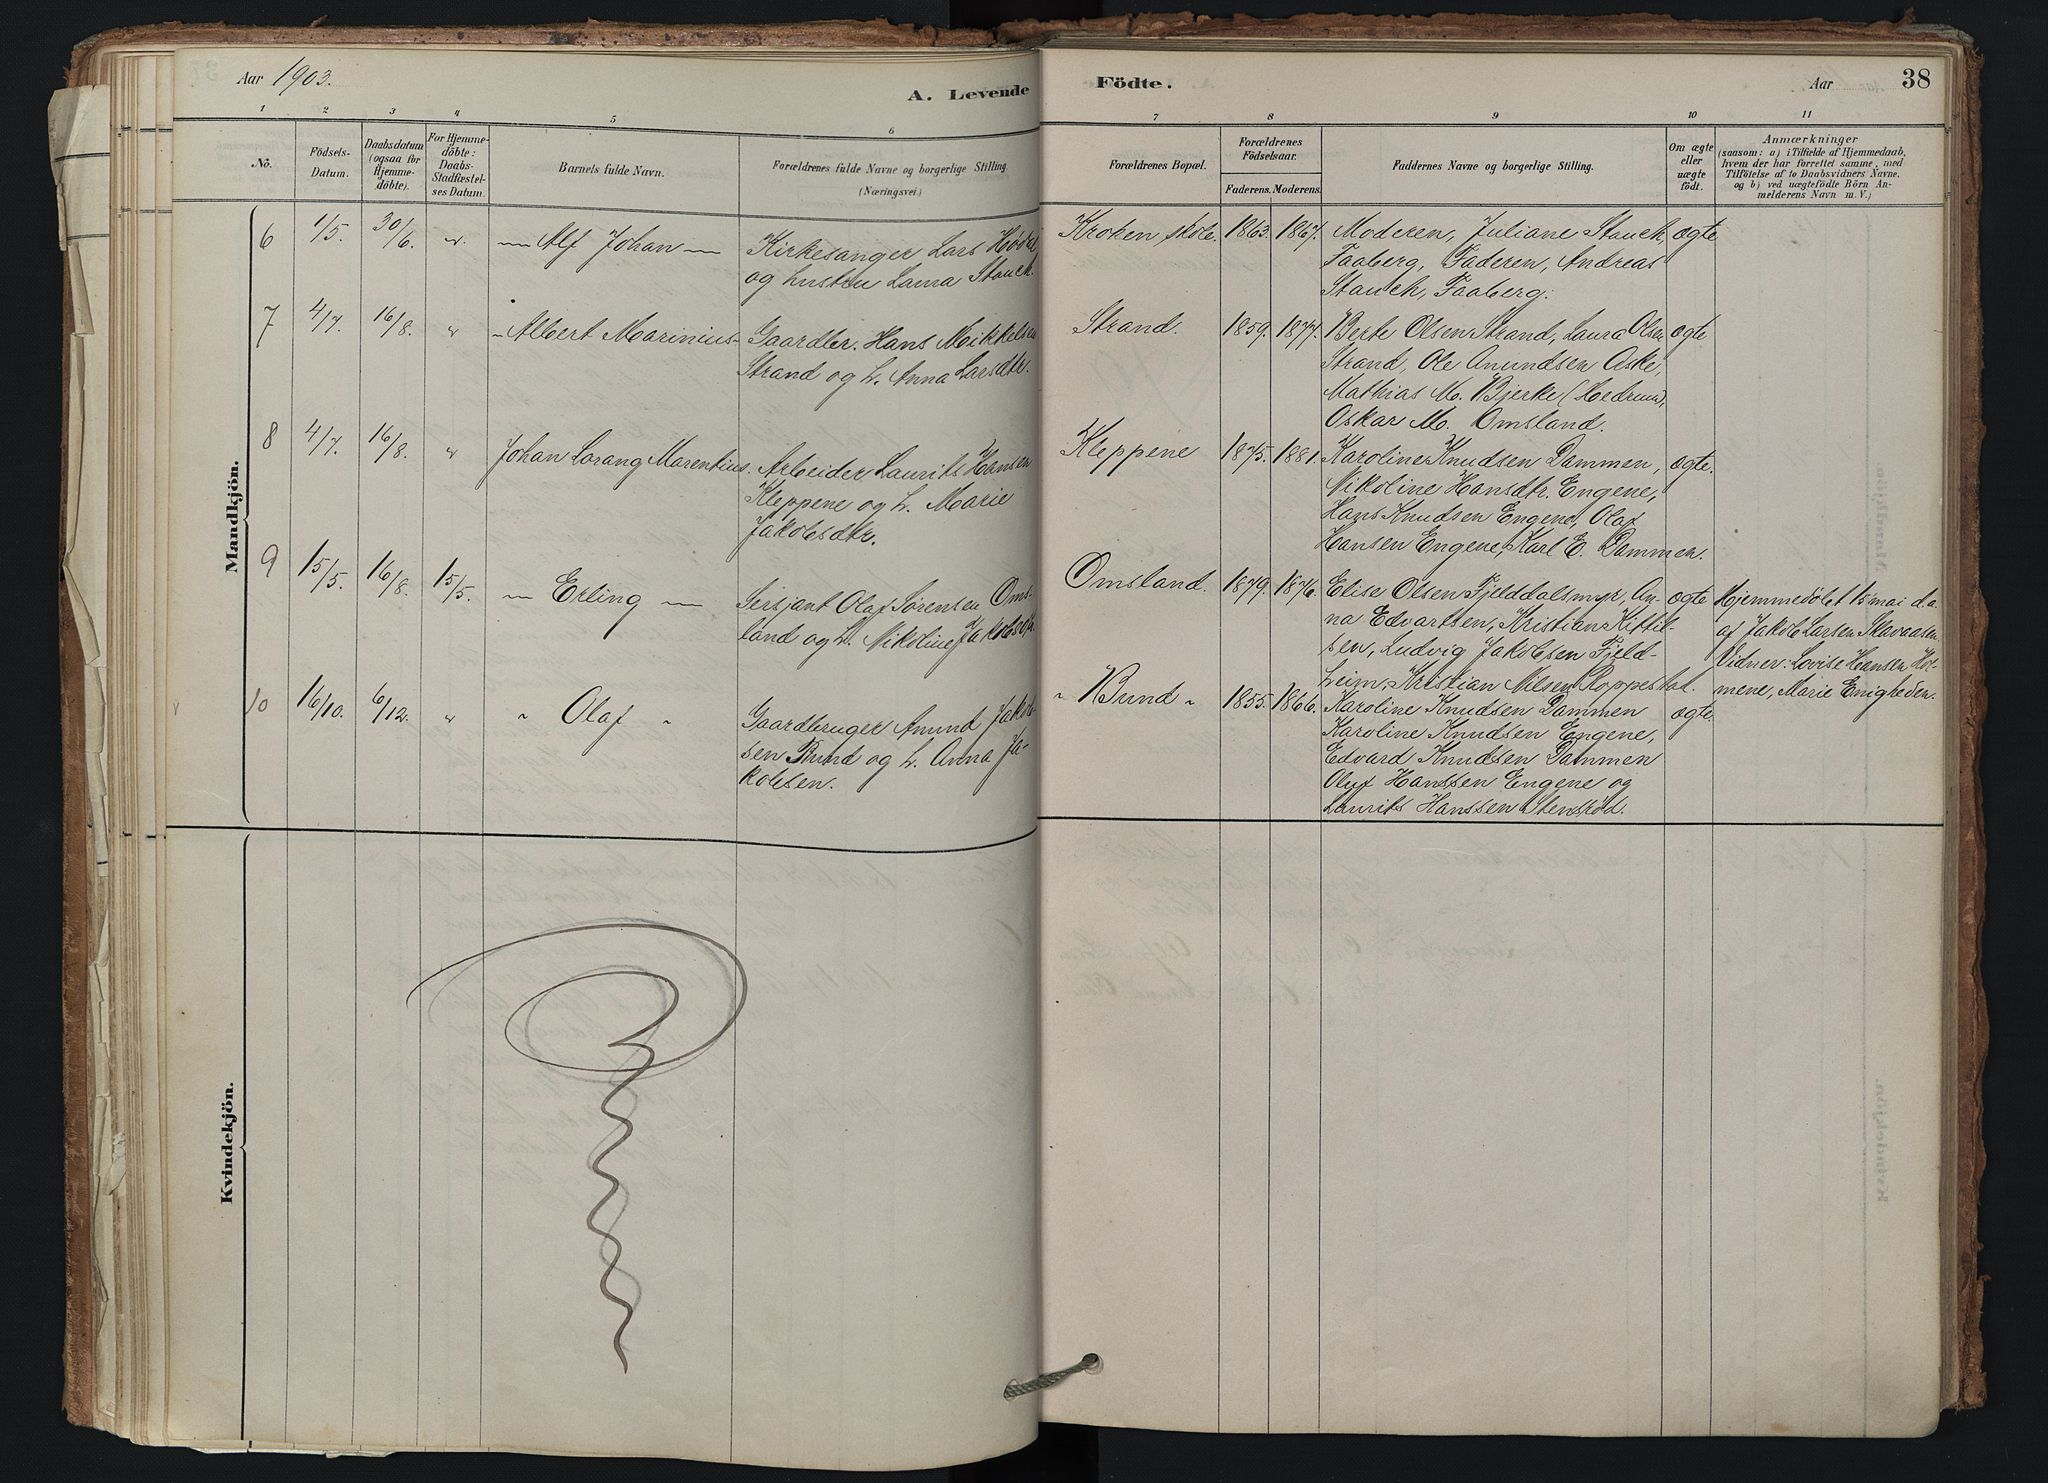 Aar 1903.
A. Levende
Födte.
Aar
38
1 2 3 4 5 6 7 8 9 10 11
No.
Födsels-
Datum.
Daabsdatum
(ogsaa for
Hjemme-
döbte).
For Hjemme-
döbte:
Daabs-
Stadfæstel-
ses Datum.
Barnets fulde Navn.
Forældrenes fulde Navne og borgerlige Stilling
(Næringsvei.)
Forældrenes Bopæl.
Forældrenes
Födselsaar.
Faderens. Moderens.
Faddernes Navne og borgerlige Stilling.
Om ægte
eller
uægte
födt.
Anmærkninger
(saasom: a) i Tilfælde af Hjemmedaab,
hvem der har forrettet samme, med
Tilföielse af to Daabsvidners Navne.
og b) ved uægtefödte Börn An-
melderens Navn m. V.)
Mandkjön.
6 1/5. 30/6. " — Alf Johan —
Kirkesanger Lars
og hustru Laura Stauch.
Kroken skole. 1863. 1867.
Moderen, Juliane Stauch,
Faaberg, Faderen, Andreas
Stauch, Faaberg.
ægte
7 4/7. 16/8. " - Albert Marinius -
Gaardbr. Hans Mikkelsen
Strand og h. Anna Larsdtr.
Strand. 1859. 1877.
Berte Olsen Strand, Laura Olsen
Strand, Ole Anundsen Aske,
Mathias M. Bjerke (Hedrum),
Oskar M. Omsland.
ægte
8 4/7. 16/8. " Johan Lorang Marentius.
Arbeider Laurits Hansen
Kleppene og h. Marie
Jakobsdtr.
Kleppene 1875. 1881.
Karoline Knudsen Dammen,
Nikoline Hansdtr. Engene,
Hans Knudsen Engene, Olaf
Hansen Engene, Karl E. Dammen.
ægte.
9 15/5. 16/8. 15/5. — Erling —
Sersjant Olaf Sørensen Oms-
land og h. Nikoline Jakobsdtr.
Omsland. 1879. 1876.
Elise Olsen Fjelddalsmyr, An-
na Edvartsen, Kristian Kittil-
sen, Ludvig Jakobsen Fjeld-
heim, Kristian Nilsen Roppestal.
ægte
Hjemmedøbt 15 mai d.a.
af Jakob Larsen Skavaasen
Vidner: Lovise Hansen Hol-
mene, Marie Enigheden.
10 16/10. 6/12. " " Olaf "
Gaardbruger Anund Jakob-
sen Bund og h. Anna Ja-
kobsen.
" Bund " 1855. 1866.
Karoline Knudsen Dammen
Karoline Knudsen Engene,
Edvard Knudsen Dammen
Oluf Hanssen Engene og
Laurits Hanssen Stensrød.
ægte.
Kvindekjön.